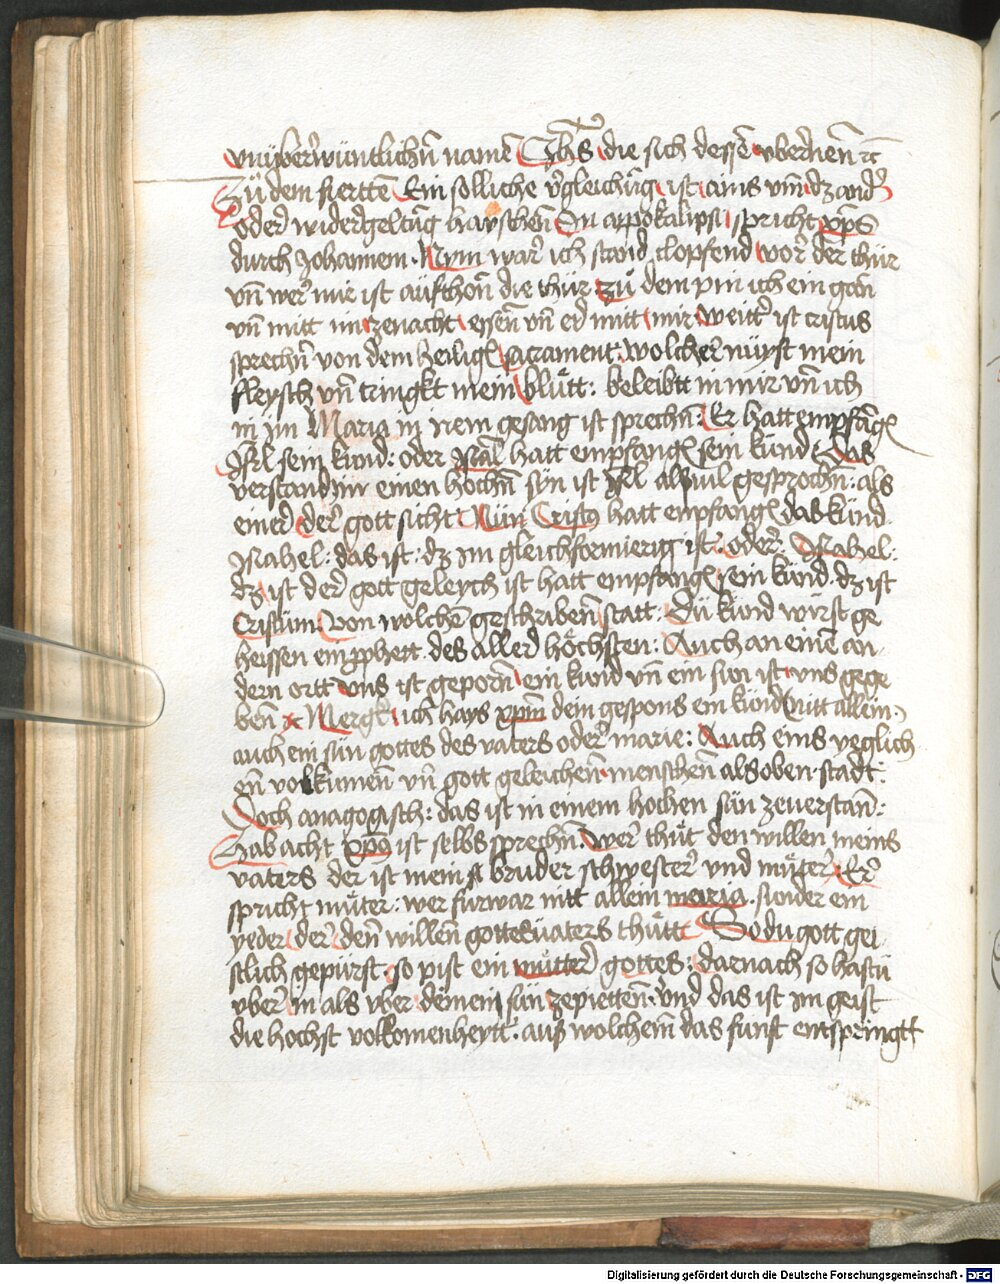 vnüberwüntlichñ namē Jhs die sich dessē vbernēn ꝛc
Zü dem fierttē Ein solliche v̓gleichūg ist ainis vm̄ dz ander
oder widergeltūg hayschen̄ In appokalipsi spricht xp̄s
durch Johannem. Nym war̓ ich stand clopfend vor̓ der thür
vn̄ wer̓ mir ist aūfthon̄ die thür zü dem pin ich ein gan̄
vn̄ mitt im zenacht essen̄ vn̄ er mitt mir weitt̓ ist cristus
sprechn̄ von dem heilige sacrament: wolcher nüyst mein
fleysch vn̄ tringkt mein blütt: beleibtt in mir vn̄ ich
in im Maria in irem gesang ist sprechn̄: Er hatt empfāgē
Jsrl sein kind: oder hatt empfangē sein kind Das
verstand im einen hochn̄ sÿn ist Jsrl alsuil gesprochn̄: als
einer der gott sicht: Nün Cristꝰ hatt empfangē das kind
das ist: dz im gleichformierig ist. oder:
dz ist der gott geleych ist hatt empfangē sein kind. dz ist
Cristüm: Von wolchē geschribenn statt: Dü kind würst ge
heissen ein pphett des aller höchsten: Auch an einē an
dern ortt vns ist geporn̄ ein kind vn̄ ein sun ist vns gege
ben̄ Mergk ich hays xp̄m dein gespons ein kind nitt allein
auch ein sün gottes des vaters oder marie: Auch eins yeglich
en̄ volkumēn vn̄ gott geleichen̄ menschen̄ als oben stadt:
Doch anagogisch: das ist in einem hochen sün zeuerstan̄:
Hab acht xp̄s ist selbs sprechn̄: Wer̓ thüt den willen meins
vaters der ist mein bruder schwester̓ vnd müter̓ Er̓
spricht müter: wer fürwar nitt allein maria. sunder ein
yeder der den̄ willen̄ gottes vaters thütt So du gott gei
stlich gepürst so pist ein mütter gottes: darnach so hastu
vber in als vber deinein sün zepietten̄: vnd das ist im geist
die hochst volkomenheytt. auß wolchem̄ das funfft entspringtt
Digitalisierung gefördert durch die Deutsche Forschungsgemeinschaft - DFG